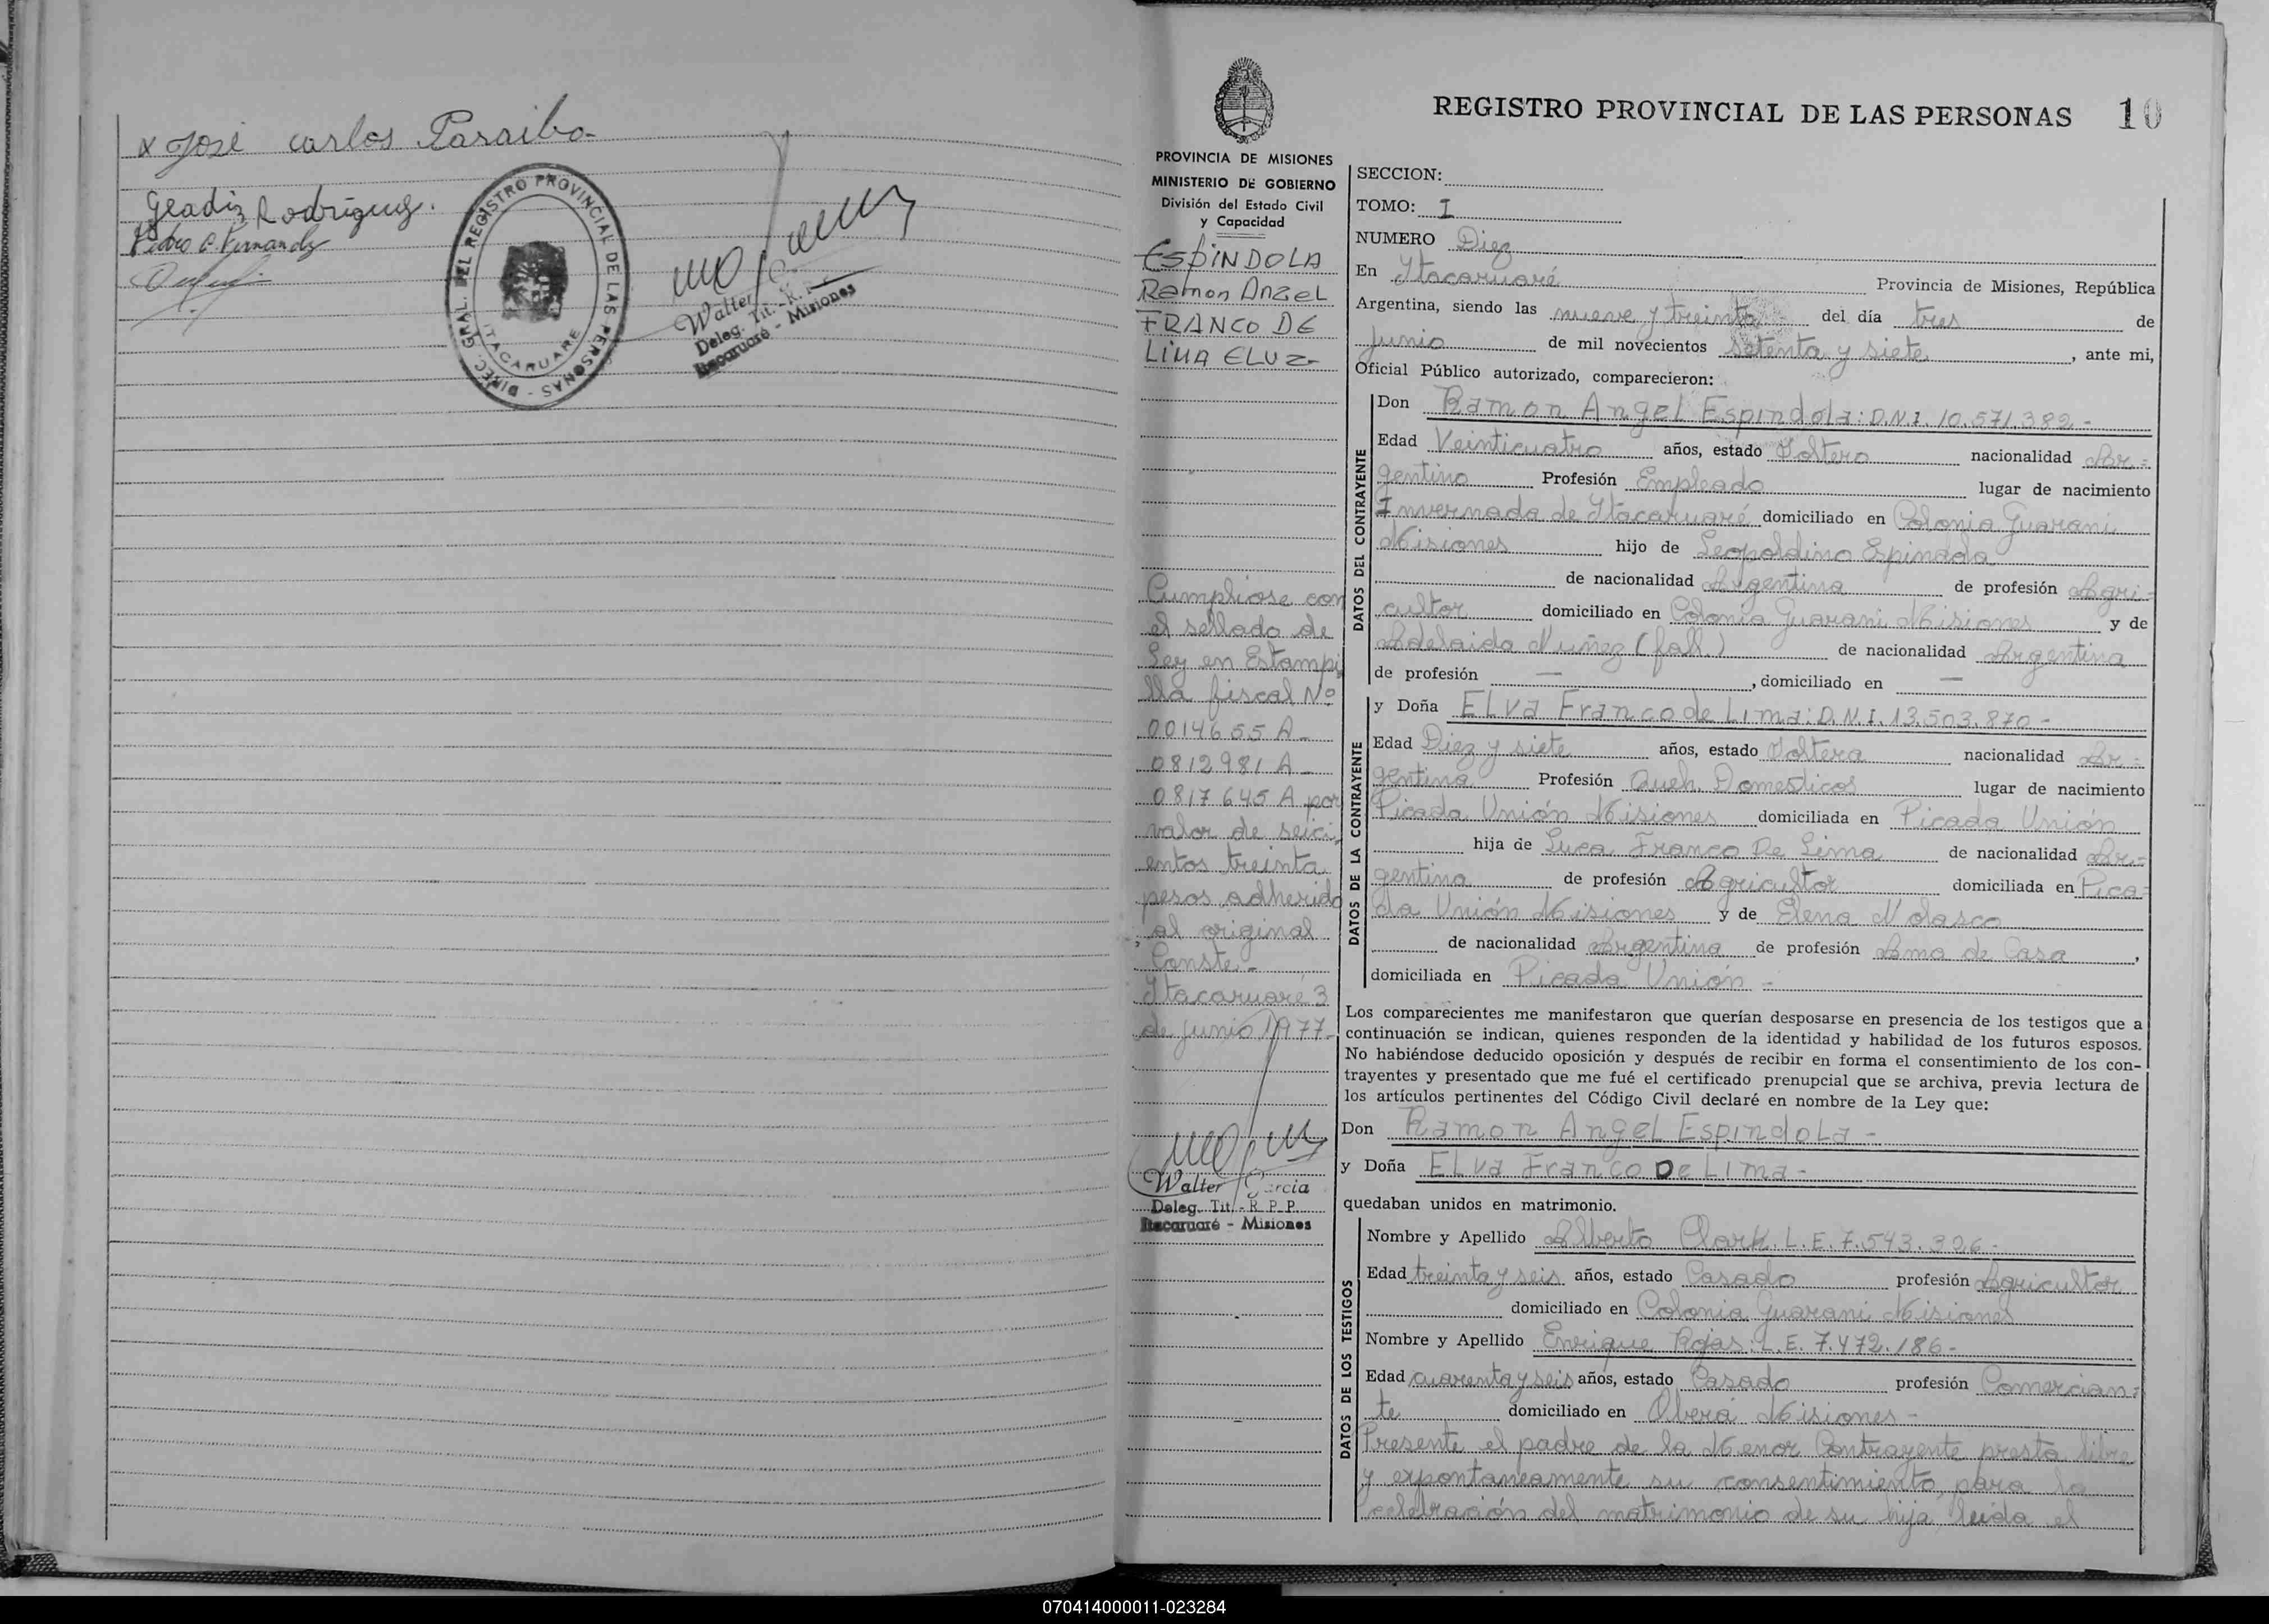 x José carlos Paraibo-
Gladiz Rodríguez.
Pedro C. Fernandz
DIREC. GRAL. DEL REGISTRO PROVINCIAL DE LAS PERSONAS -
ITACARUARE
Walter
Deleg. Tit. - R.
Itacaruaré - Misiones
PROVINCIA DE MISIONES
MINISTERIO DE GOBIERNO
División del Estado Civil
y Capacidad
ESPINDOLA
Ramon Angel
FRANCO DE
LIMA ELVZ-
Cumpliose con
el sellado de
Ley en Estampi
lla fiscal Nº
0014655 A-
0812981 A-
0817645 A por
valor de seici
entos treinta
pesos adherido
al original
Conste.-
Itacaruaré 3
de junio 1977-
Walter Garcia
Deleg. Tit. - R. P. P.
Itacaruaré - Misiones
REGISTRO PROVINCIAL DE LAS PERSONAS 10
SECCION:
TOMO: I
NUMERO Diez
En Itacaruaré Provincia de Misiones, República
Argentina, siendo las nueve y treinta del día tres de
Junio de mil novecientos setenta y siete, ante mi,
Oficial Público autorizado, comparecieron:
DATOS DEL CONTRAYENTE
Don Ramon Angel Espindola: D.N.I. 10.571.382-
Edad Veinticuatro años, estado Soltero nacionalidad Ar=
gentino Profesión Empleado lugar de nacimiento
Invernada de Itacaruaré domiciliado en Colonia Guarani
Misiones hijo de Leopoldino Espindola
de nacionalidad Argentina de profesión Agri=
cultor domiciliado en Colonia Guarani Misiones y de
Adelaida Nuñez (fall.) de nacionalidad Argentina
de profesión —, domiciliado en —
DATOS DE LA CONTRAYENTE
y Doña Elva Franco de Lima: D.N.I. 13.503.870-
Edad Diez y siete años, estado Soltera nacionalidad Ar=
gentina Profesión Queh. Domesticos lugar de nacimiento
Picada Unión Misiones domiciliada en Picada Unión
hija de Luca Franco De Lima de nacionalidad Ar=
gentino de profesión Agricultor domiciliada en Pica=
da Unión Misiones y de Elena Nolasco
de nacionalidad Argentina de profesión Ama de Casa,
domiciliada en Picada Unión -
Los comparecientes me manifestaron que querían desposarse en presencia de los testigos que a
continuación se indican, quienes responden de la identidad y habilidad de los futuros esposos.
No habiéndose deducido oposición y después de recibir en forma el consentimiento de los con-
trayentes y presentado que me fué el certificado prenupcial que se archiva, previa lectura de
los artículos pertinentes del Código Civil declaré en nombre de la Ley que:
Don Ramon Angel Espindola -
y Doña Elva Franco De Lima-
quedaban unidos en matrimonio.
DATOS DE LOS TESTIGOS
Nombre y Apellido Alberto Clark. L.E. 7.543.326-
Edad treinta y seis años, estado Casado profesión Agricultor
domiciliado en Colonia Guarani Misiones
Nombre y Apellido Enrique Rojas: L.E. 7.472.186-
Edad cuarenta y seis años, estado Casado profesión Comercian=
te domiciliado en Oberá Misiones -
Presente el padre de la Menor Contrayente presta libre
y expontaneamente su consentimiento para la
celebración del matrimonio de su hija, leida el
070414000011-023284